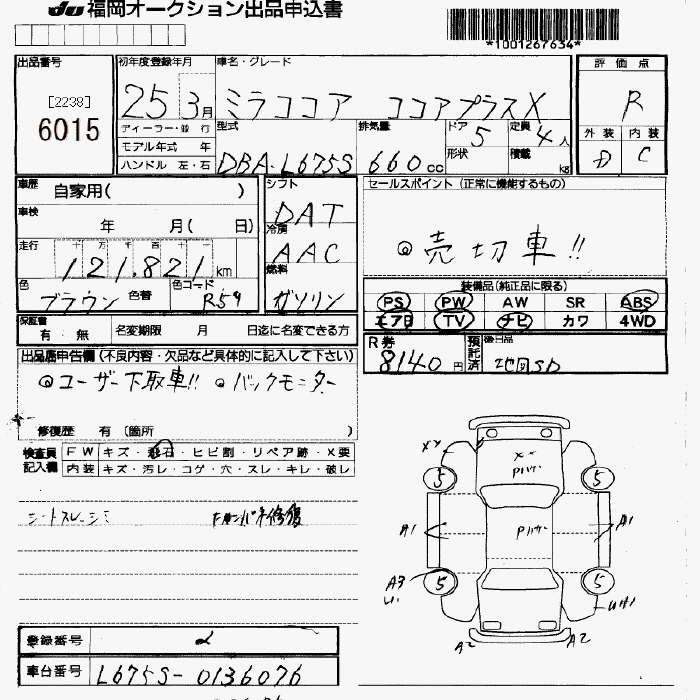 福岡オークション出品申込書
*1001267634*
出品番号
[2238]
6015
初年度登録年月
25 3月
車名・グレード
ミラココア ココアプラスX
評価点
R
外装 内装
D C
ディーラー・並 行
モデル年式 年
ハンドル 左・右
型式
DBA-L675S
排気量
660cc
ドア
5
形状
定員
4人
積載
kg
車歴
自家用( )
車検
年 月( 日)
走行
十 万 千 百 十 一
121,821km
色
ブラウン
色替
色コード
R59
シフト
DAT
冷房
AAC
燃料
ガソリン
セールスポイント (正常に機能するもの)
◎売切車!!
装備品(純正品に限る)
PS PW AW SR ABS
エアB TV ナビ カワ 4WD
保証書
有・無
名変期限 月 日迄に名変できる方
R券
8140円
預託済
後日品
地図SD
出品店申告欄 (不良内容・欠品など具体的に記入して下さい)
◎ユーザー下取車!! ◎バックモニター
修復歴 有 (箇所 )
検査員記入欄
FW キズ・飛石・ヒビ割・リペア跡・X要
内装 キズ・汚レ・コゲ・穴・スレ・キレ・破レ
シートスレ・シミ
修復
5 5
A1 A1
A3
5 5
A2 A2
登録番号
車台番号
L675S-0136076